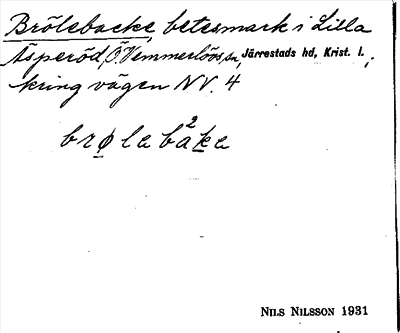 Brölebacke, betesmark i Lilla
Äsperöd, Ö. Vemmerlövs sn, Järrestads hd, Krist. l.,
kring vägen NV. 4
brøleba²ke
NILS NILSSON 1931